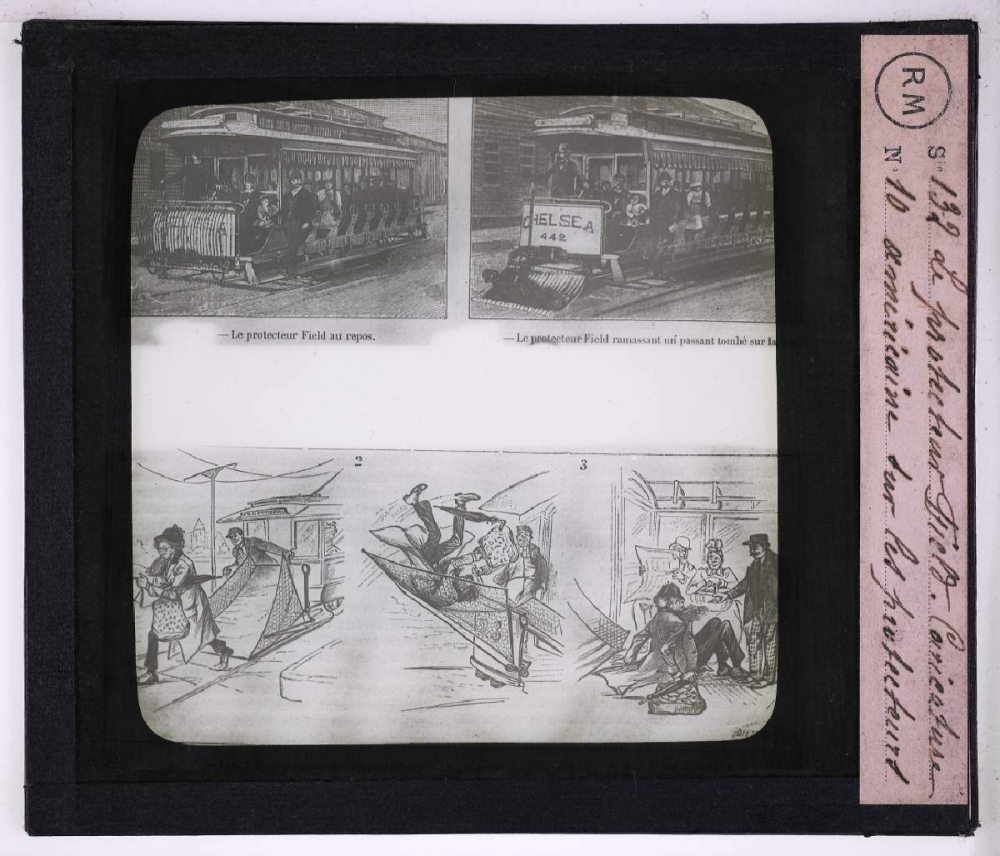 CHELSEA
442
— Le protecteur Field au repos.
— Le protecteur Field ramassant un passant tombé sur la
2
3
RM
Sie 132 Le protecteur Field. Caricature
No 10 américaine sur les protecteurs